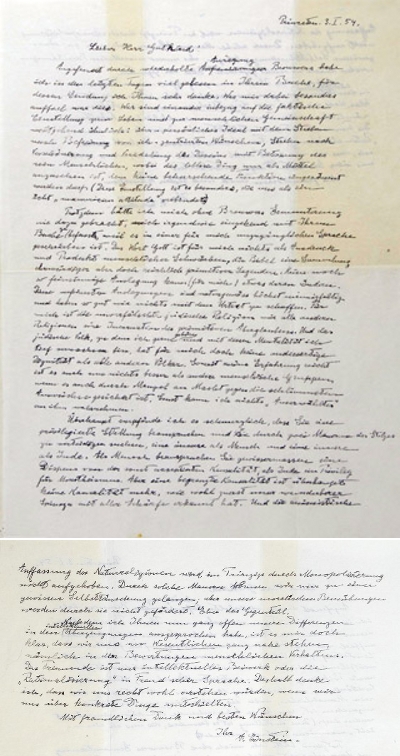 Princeton, 3. I. 54.
Lieber Herr Gutkind!
Angefeuert durch wiederholte Anregung Brouwers habe
ich in den letzten Tagen viel gelesen in Ihrem Buche, für
dessen Sendung ich Ihnen sehr danke. Was mir dabei besonders
auffiel war dies. Wir sind einander inbezug auf die faktische
Einstellung zum Leben und zur menschlichen Gemeinschaft
weitgehend ähnlich: persönliches Ideal mit dem Streben
nach Befreiung von ich-zentrierten Wünschen, Streben nach
Verschönerung und Veredelung des Daseins mit Betonung des
rein Menschlichen, wobei das leblose Ding nur als Mittel
anzusehen ist, dem keine beherrschende Funktion eingeräumt
werden darf. (Diese Einstellung ist es besonders, die uns als ein
echt "unamerican attitude" verbindet)
Trotzdem hätte ich mich ohne Brouwers Ermunterung
nie dazu gebracht, mich irgendwie eingehend mit Ihrem
Buche zu befassen, weil es in einer für mich unzugänglichen Sprache
geschrieben ist. Das Wort Gott ist für mich nichts als Ausdruck
und Produkt menschlicher Schwächen, die Bibel eine Sammlung
ehrwürdiger aber doch reichlich primitiver Legenden. Keine noch
so feinsinnige Auslegung kann (für mich) etwas daran ändern.
Diese verfeinerten Auslegungen sind naturgemäss höchst mannigfaltig
und haben so gut wie nichts mit dem Urtext zu schaffen. Für
mich ist die unverfälschte jüdische Religion wie alle anderen
Religionen eine Incarnation des primitiven Aberglaubens. Und das
jüdische Volk, zu dem ich gerne gehöre und mit dessen Mentalität ich
tief verwachsen bin, hat für mich doch keine andersartige
Dignität als alle anderen Völker. Soweit meine Erfahrung reicht
ist es auch um nichts besser als andere menschliche Gruppen
wenn es auch durch Mangel an Macht gegen die schlimmsten
Auswüchse gesichert ist. Sonst kann ich nichts "Auserwähltes"
an ihm wahrnehmen.
Überhaupt empfinde ich es schmerzlich, dass Sie eine
privilegierte Stellung beanspruchen und sie durch zwei Mauern des Stolzes
zu verteidigen suchen, eine äussere als Mensch und eine innere
als Jude. Als Mensch beanspruchen Sie gewissermassen einen
Dispens von der sonst acceptierten Kausalität, als Jude ein Privileg
für Monotheismus. Aber eine begrenzte Kausalität ist überhaupt
keine Kausalität mehr, wie wohl zuerst unser wunderbarer
Spinoza mit aller Schärfe erkannt hat. Und die animistische
Auffassung der Naturreligionen wird im Prinzip durch Monopolisierung
nicht aufgehoben. Durch solche Mauern können wir nur zu einer
gewissen Selbsttäuschung gelangen, aber unsere moralischen Bemühungen
werden durch sie nicht gefördert. Eher das Gegenteil.
Nachdem ich Ihnen nun ganz offen unsere Differenzen
in den intellektuellen Überzeugungen ausgesprochen habe, ist es mir doch
klar, dass wir uns im Wesentlichen ganz nahe stehen,
nämlich in den Bewertungen menschlichen Verhaltens.
Das Trennende ist nur intellektuelles Beiwerk oder die
"Rationalisierung" in Freud'scher Sprache. Deshalb denke
ich, dass wir uns recht wohl verstehen würden, wenn wir
uns über konkrete Dinge unterhielten.
Mit freundlichem Dank und besten Wünschen
Ihr A. Einstein.